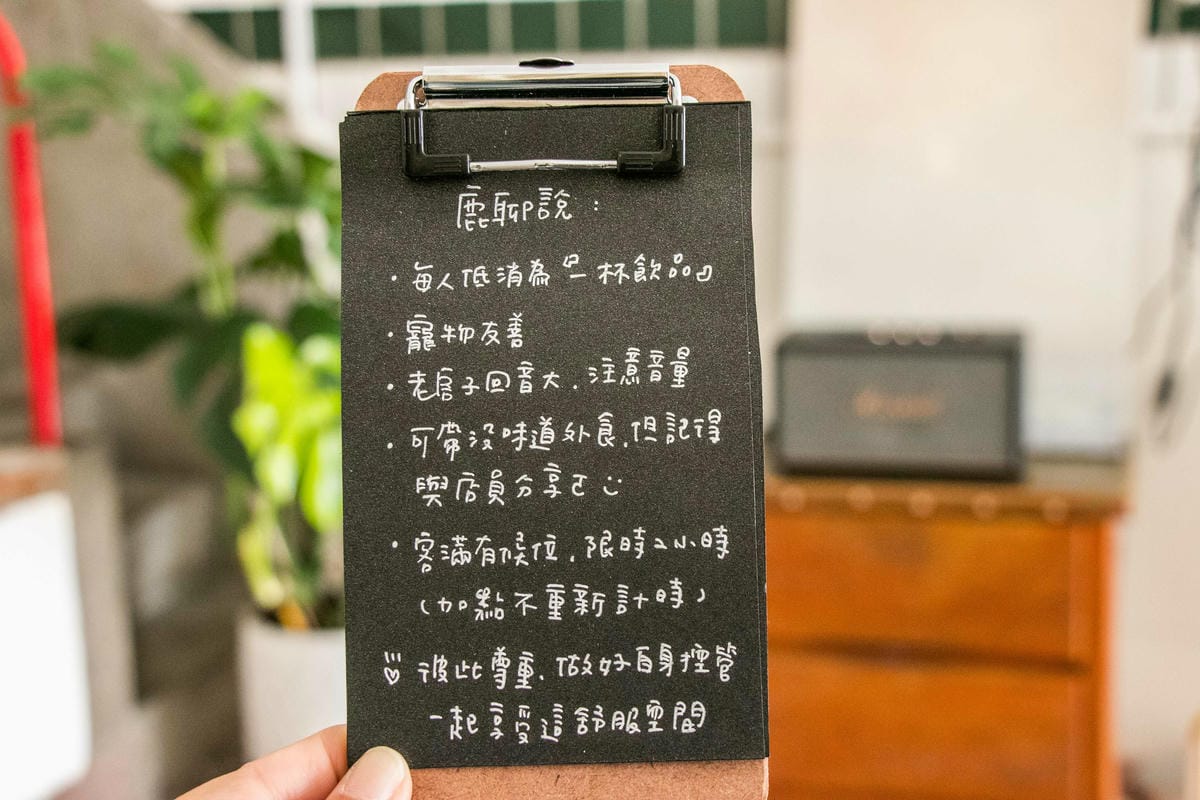 鹿聊說：
・每人低消為『一杯飲品』
・寵物友善
・老房子回音大，注意音量
・可帶沒味道外食，但記得
與店員分享ㄛ
・客滿有候位，限時2小時
（加點不重新計時）
彼此尊重，做好自身控管
一起享受這舒服空間